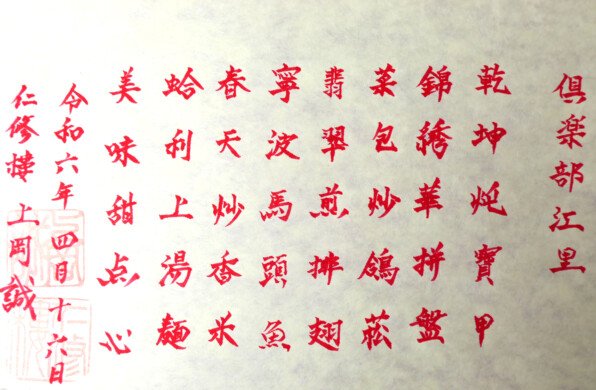 倶楽部江里
乾坤炖寶甲
錦繡華拼盤
菜包炒鴿菘
翡翠煎排翅
寧波馬頭魚
春天炒香米
蛤利上湯麺
美味甜点心
令和六年四月十六日
仁修樓上岡誠